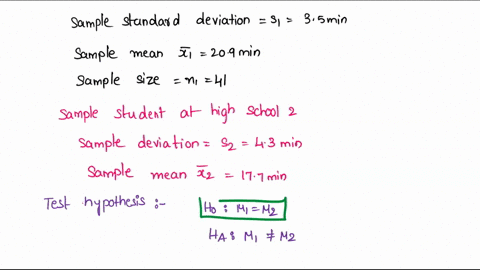 Sample standard deviation = s₁ = 3.5min
Sample mean x̄₁ = 20.9min
Sample size = n₁ = 41
Sample student at high school 2
Sample deviation = s₂ = 4.3 min
Sample mean x̄₂ = 17.7 min
Test hypothesis :- H₀ : M₁ = M₂
HA : M₁ ≠ M₂